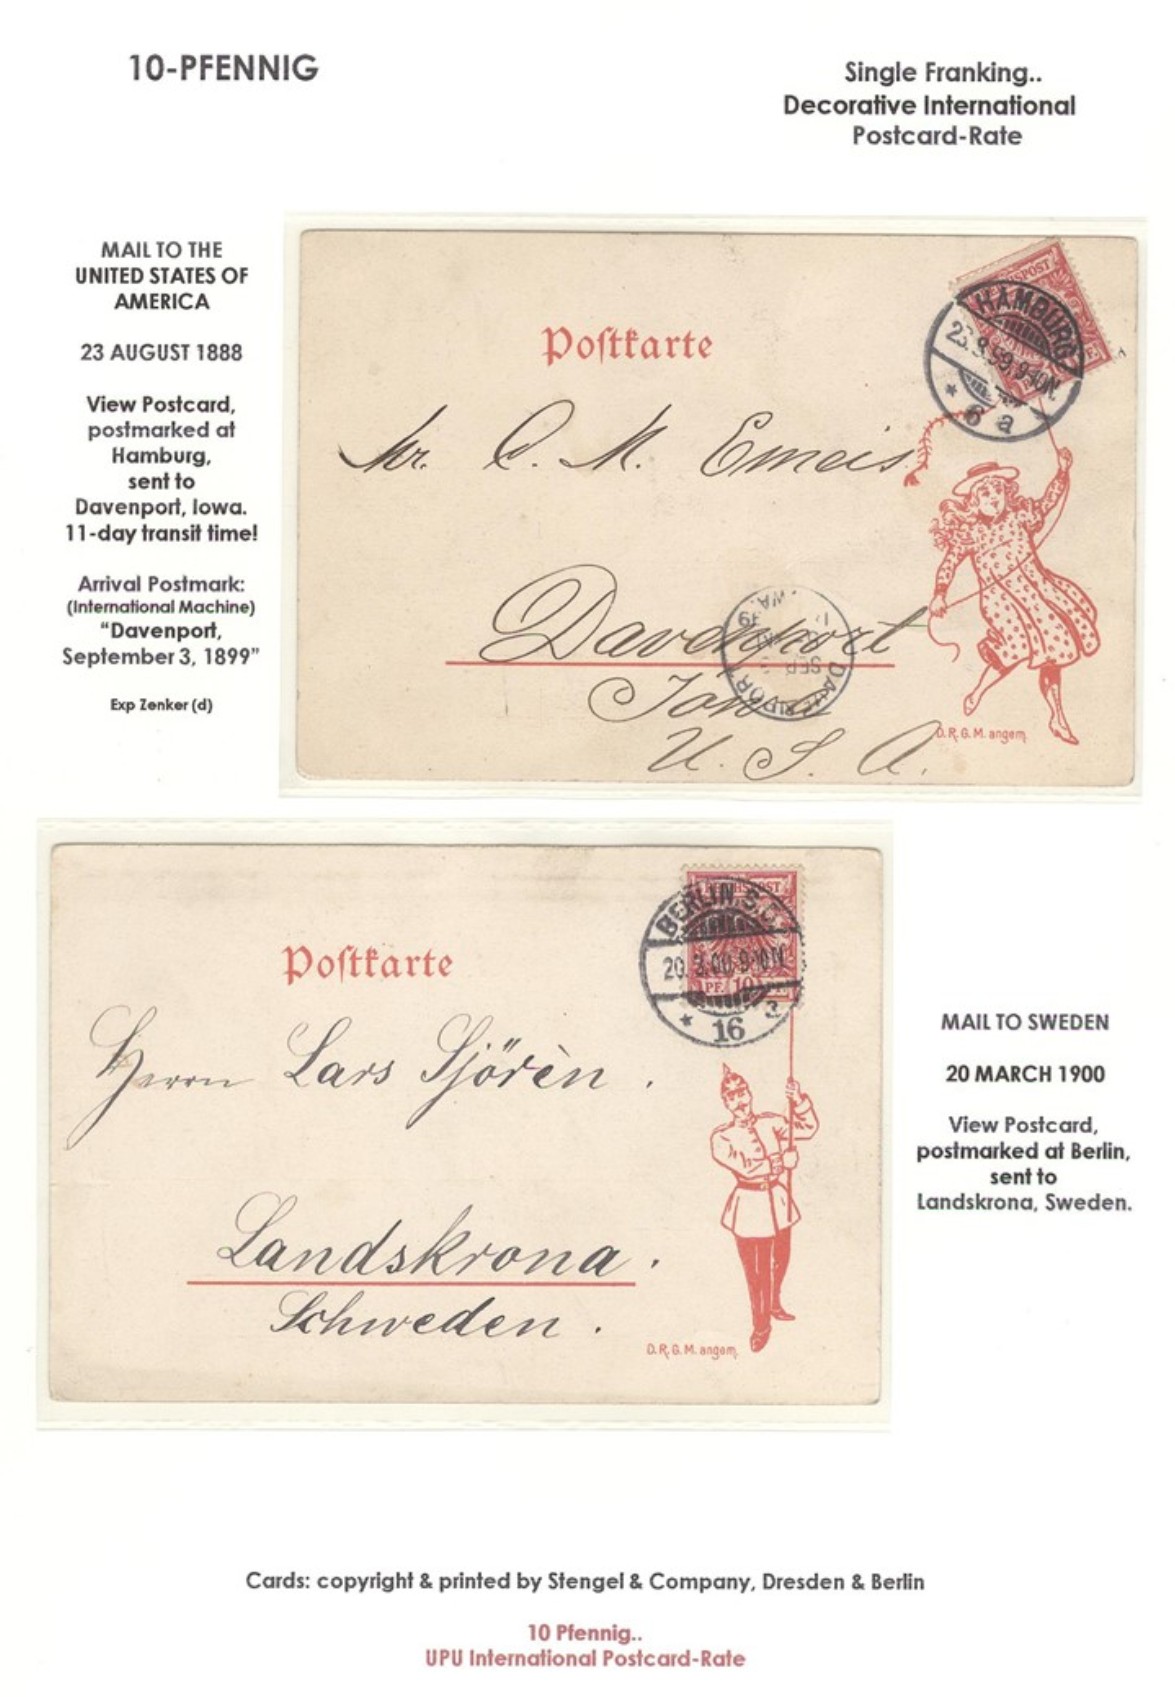 10-PFENNIG
Single Franking..
Decorative International
Postcard-Rate
MAIL TO THE
UNITED STATES OF
AMERICA
23 AUGUST 1888
View Postcard,
postmarked at
Hamburg,
sent to
Davenport, Iowa.
11-day transit time!
Arrival Postmark:
(International Machine)
“Davenport,
September 3, 1899”
Exp Zenker (d)
REICHSPOST
HAMBURG
23.8.99.9-10N.
* 6 a
Poſtkarte
Mr. C. M. Emeis
Davenport
Iowa
U. S. A.
DAVENPORT
SEP 3
D.R.G.M. angem.
REICHSPOST
BERLIN S.C.
20.3.00.9-10N
PF. 10 PF.
* 16 a
Poſtkarte
Herrn Lars Sjörèn.
Landskrona.
Schweden.
D.R.G.M. angem.
MAIL TO SWEDEN
20 MARCH 1900
View Postcard,
postmarked at Berlin,
sent to
Landskrona, Sweden.
Cards: copyright & printed by Stengel & Company, Dresden & Berlin
10 Pfennig..
UPU International Postcard-Rate